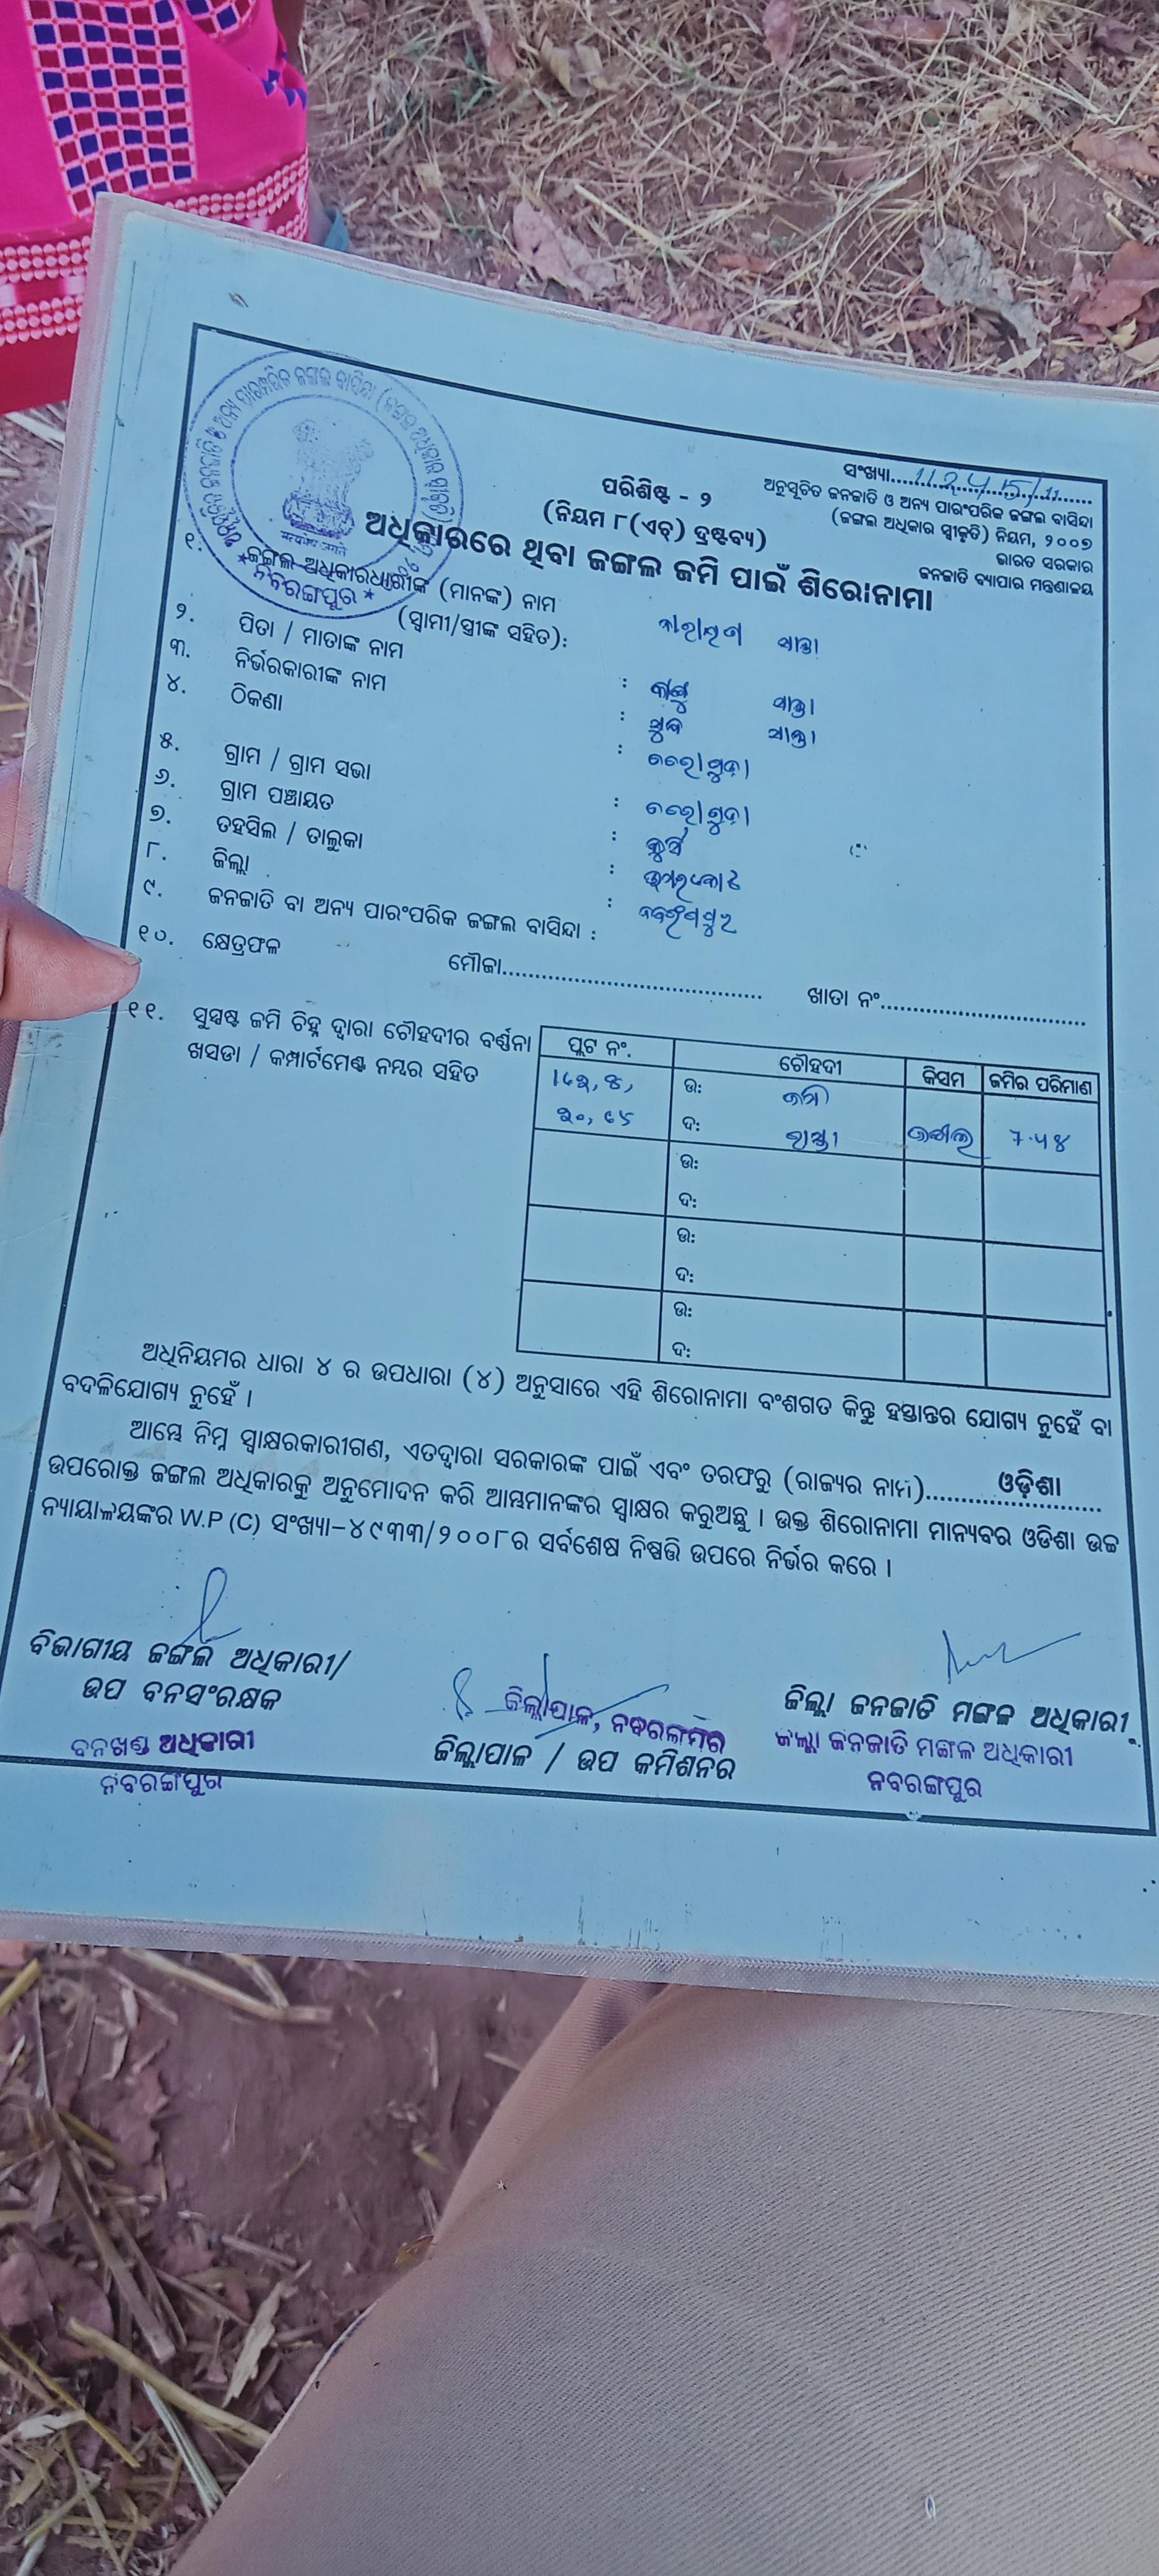 ସଂଖ୍ୟା..........................
ଅନୁସୂଚିତ ଜନଜାତି ଓ ଅନ୍ୟ ପାରଂପରିକ ଜଙ୍ଗଲ ବାସିନ୍ଦା
(ଜଙ୍ଗଲ ଅଧିକାର ସ୍ୱୀକୃତି) ନିୟମ, ୨୦୦୭
ଭାରତ ସରକାର
ଜନଜାତି ବ୍ୟାପାର ମନ୍ତ୍ରଣାଳୟ
ପରିଶିଷ୍ଟ - ୨
(ନିୟମ ୮(ଏଚ୍) ଦ୍ରଷ୍ଟବ୍ୟ)
ଅଧିକାରରେ ଥିବା ଜଙ୍ଗଲ ଜମି ପାଇଁ ଶିରୋନାମା
ନବରଙ୍ଗପୁର
୧. ଜଙ୍ଗଲ ଅଧିକାରଧାରୀଙ୍କ (ମାନଙ୍କ) ନାମ
(ସ୍ୱାମୀ/ସ୍ତ୍ରୀଙ୍କ ସହିତ):
୨. ପିତା / ମାତାଙ୍କ ନାମ :
୩. ନିର୍ଭରକାରୀଙ୍କ ନାମ :
୪. ଠିକଣା :
୫. ଗ୍ରାମ / ଗ୍ରାମ ସଭା :
୬. ଗ୍ରାମ ପଞ୍ଚାୟତ :
୭. ତହସିଲ / ତାଲୁକା : ଉମରକୋଟ
୮. ଜିଲ୍ଲା : ନବରଙ୍ଗପୁର
୯. ଜନଜାତି ବା ଅନ୍ୟ ପାରଂପରିକ ଜଙ୍ଗଲ ବାସିନ୍ଦା :
୧୦. କ୍ଷେତ୍ରଫଳ ମୌଜା.................................... ଖାତା ନଂ...............................
୧୧. ସୁସ୍ପଷ୍ଟ ଜମି ଚିହ୍ନ ଦ୍ୱାରା ଚୌହଦୀର ବର୍ଣ୍ଣନା
ଖସଡା / କମ୍ପାର୍ଟମେଣ୍ଟ ନମ୍ବର ସହିତ
ପ୍ଲଟ ନଂ. ଚୌହଦୀ କିସମ ଜମିର ପରିମାଣ
ଉ: ଜମି
ଦ: ରାସ୍ତା ଜଙ୍ଗଲ
ଉ:
ଦ:
ଉ:
ଦ:
ଉ:
ଦ:
ଅଧିନିୟମର ଧାରା ୪ ର ଉପଧାରା (୪) ଅନୁସାରେ ଏହି ଶିରୋନାମା ବଂଶଗତ କିନ୍ତୁ ହସ୍ତାନ୍ତର ଯୋଗ୍ୟ ନୁହେଁ ବା
ବଦଳିଯୋଗ୍ୟ ନୁହେଁ ।
ଆମ୍ଭେ ନିମ୍ନ ସ୍ୱାକ୍ଷରକାରୀଗଣ, ଏତଦ୍ଦ୍ୱାରା ସରକାରଙ୍କ ପାଇଁ ଏବଂ ତରଫରୁ (ରାଜ୍ୟର ନାମ)..........ଓଡ଼ିଶା..........
ଉପରୋକ୍ତ ଜଙ୍ଗଲ ଅଧିକାରକୁ ଅନୁମୋଦନ କରି ଆମ୍ଭମାନଙ୍କର ସ୍ୱାକ୍ଷର କରୁଅଛୁ । ଉକ୍ତ ଶିରୋନାମା ମାନ୍ୟବର ଓଡିଶା ଉଚ୍ଚ
ନ୍ୟାୟାଳୟଙ୍କର W.P (C) ସଂଖ୍ୟା-୪୯୩୩/୨୦୦୮ର ସର୍ବଶେଷ ନିଷ୍ପତ୍ତି ଉପରେ ନିର୍ଭର କରେ ।
ବିଭାଗୀୟ ଜଙ୍ଗଲ ଅଧିକାରୀ/
ଉପ ବନସଂରକ୍ଷକ
ବନଖଣ୍ଡ ଅଧିକାରୀ
ନବରଙ୍ଗପୁର
ଜିଲ୍ଲାପାଳ,
ଜିଲ୍ଲାପାଳ / ଉପ କମିଶନର
ଜିଲ୍ଲା ଜନଜାତି ମଙ୍ଗଳ ଅଧିକାରୀ
ଜିଲ୍ଲା ଜନଜାତି ମଙ୍ଗଳ ଅଧିକାରୀ
ନବରଙ୍ଗପୁର